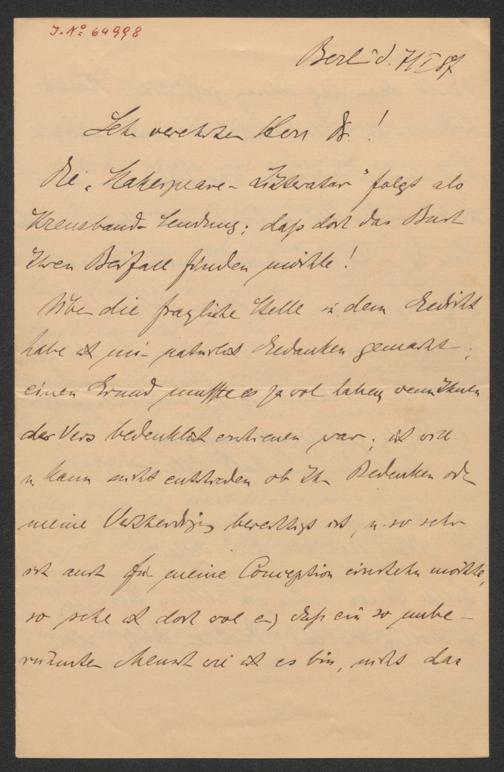 J. No 64998
Berlin d. 7/I 87
Sehr verehrter Herr Dr.!
Die „Shakespeare-Litteratur" folgt als
Kreuzband-Sendung; daß doch das Buch
Ihren Beifall finden möchte!
Über die fragliche Stelle in dem Gedicht
habe ich mir natürlich Gedanken gemacht;
einen Grund musste es ja wol haben, wenn Ihnen
der Vers bedenklich erschienen war; ich will
u. kann nicht entscheiden ob Ihr Bedenken oder
meine berechtigt ist, u. so sehr
ich auch für meine Conception einstehn möchte,
so sehe ich doch wol ein, daß ein so unbe-
rühmter Mensch wie ich es bin, nicht das